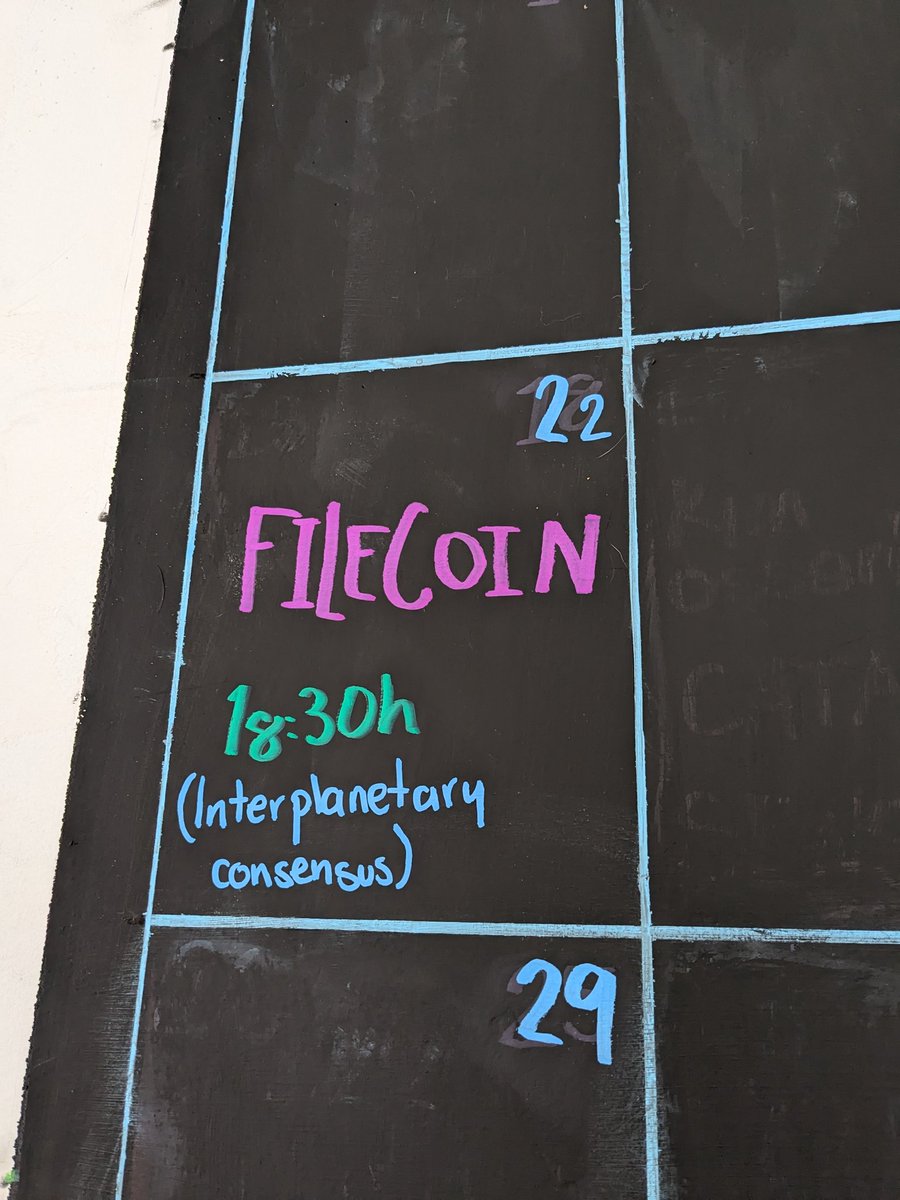 22
FILECOIN
18:30h
(Interplanetary
consensus)
29